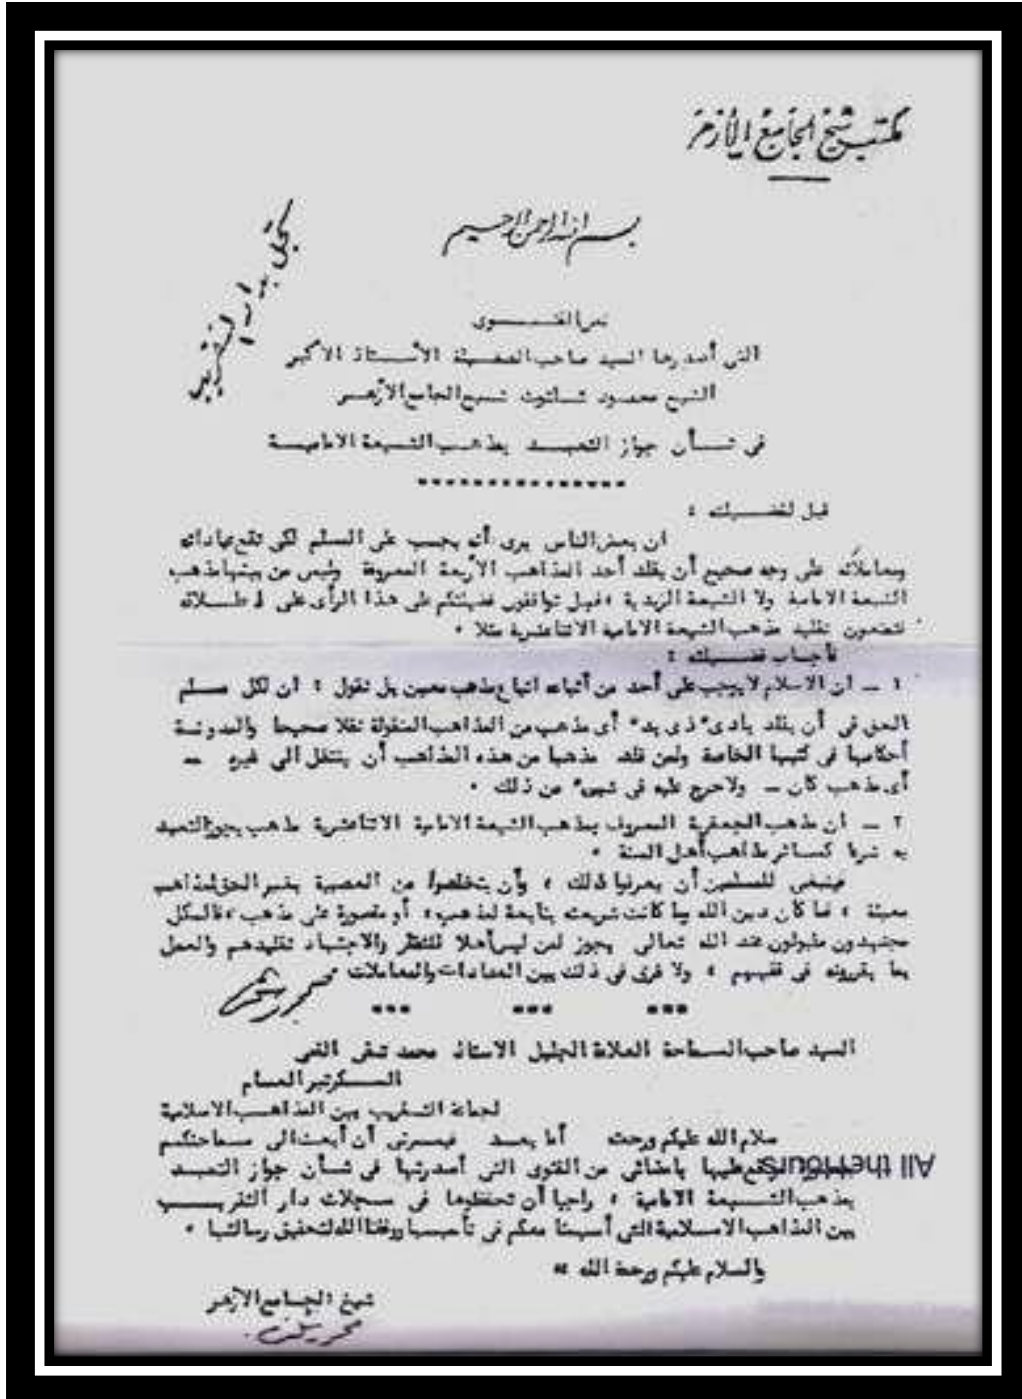 مكتب شيخ الجامع الأزهر
بسم الله الرحمن الرحيم
يسجل بدار التقريب
نص الفتوى
التى أصدرها السيد صاحب الفضيلة الأستاذ الأكبر
الشيخ محمود شلتوت شيخ الجامع الأزهر
فى شأن جواز التعبد بمذهب الشيعة الامامية
قيل لفضيلته :
ان بعض الناس يرى أنه يجب على المسلم لكى تقع عباداته
ومعاملاته على وجه صحيح أن يقلد أحد المذاهب الأربعة المعروفة وليس من بينها مذهب
الشيعة الامامية ولا الشيعة الزيدية ، فهل توافقون فضيلتكم على هذا الرأى على اطلاقه
فتمنعون تقليد مذهب الشيعة الامامية الاثناعشرية مثلا .
فأجاب فضيلته :
١ ــ ان الاسلام لا يوجب على أحد من أتباعه اتباع مذهب معين بل نقول : ان لكل مسلم
الحق فى أن يقلد بادئ ذى بدء أى مذهب من المذاهب المنقولة نقلا صحيحا والمدونة
أحكامها فى كتبها الخاصة ولمن قلد مذهبا من هذه المذاهب أن ينتقل الى غيره ــ
أى مذهب كان ــ ولا حرج عليه فى شىء من ذلك .
٢ ــ ان مذهب الجعفرية المعروف بمذهب الشيعة الامامية الاثناعشرية مذهب يجوز التعبد
به شرعا كسائر مذاهب أهل السنة .
فينبغى للمسلمين أن يعرفوا ذلك ، وأن يتخلصوا من العصبية بغير الحق لمذاهب
معينة ، فما كان دين الله وما كانت شريعته بتابعة لمذهب، أو مقصورة على مذهب ، فالكل
مجتهدون مقبولون عند الله تعالى يجوز لمن ليس أهلا للنظر والاجتهاد تقليدهم والعمل
بما يقررونه فى فقههم ، ولا فرق فى ذلك بين العبادات والمعاملات
محمود شلتوت
السيد صاحب السماحة العلامة الجليل الاستاذ محمد تقى القمى
السكرتير العام
لجماعة التقريب بين المذاهب الاسلامية
سلام الله عليكم ورحمته أما بعد فيسرنى أن أبعث الى سماحتكم
عليها بامضائى من الفتوى التى أصدرتها فى شأن جواز التعبد
All the Tours
بمذهب الشيعة الامامية ، راجيا أن تحفظوها فى سجلات دار التقريب
بين المذاهب الاسلامية التى أسهمنا معكم فى تأسيسها ووفقنا الله لتحقيق رسالتها .
والسلام عليكم ورحمة الله ،،
شيخ الجامع الأزهر
محمود شلتوت